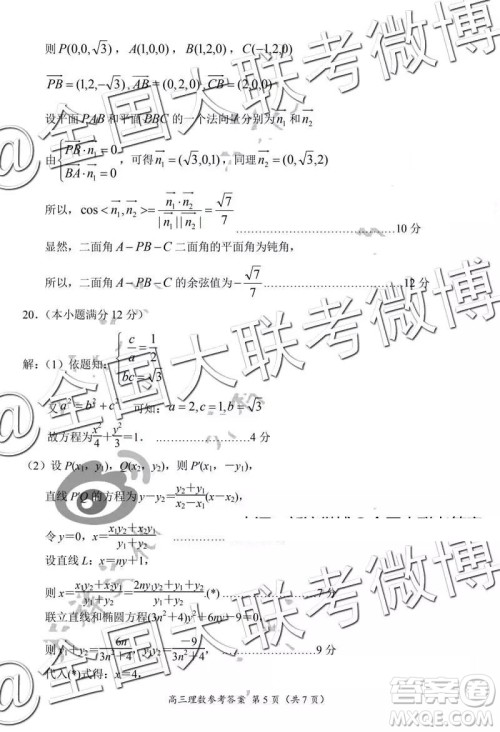 则 P(0,0,√3)，A(1,0,0)，B(1,2,0)，C(−1,2,0)
PB = (1,2,−√3), AB = (0,2,0) CB = (2,0,0)
设平面 PAB 和平面 PBC 的一个法向量分别为 n₁ 和 n₂
由 { PB·n₁ = 0
BA·n₁ = 0 ，可得 n₁ = (√3,0,1)，同理 n₂ = (0,√3,2)
所以，cos< n₁, n₂ >= n₁·n₂ / |n₁||n₂| = √7/7 ……………………10 分
显然，二面角 A−PB−C 的平面角为钝角，
所以，二面角 A−PB−C 的余弦值为 −√7/7 ……………………12 分
20.（本小题满分 12 分）
解：（1）依题知：{ c/a = 1/2
bc = √3
又 a² = b² + c² 可知：a = 2, c = 1, b = √3
故方程为 x²/4 + y²/3 = 1. ……………………4 分
（2）设 P(x₁，y₁)，Q(x₂，y₂)，则 P′(x₁，−y₁)，
直线 P′Q 的方程为 y−y₂ = (y₂+y₁)/(x₂−x₁) (x−x₂)，
令 y＝0，x = (x₁y₂+x₂y₁)/(y₁+y₂)
设直线 L：x＝ny＋1，
则 x = (x₁y₂+x₂y₁)/(y₁+y₂) = (2ny₁y₂+y₁+y₂)/(y₁+y₂).(*) ……………7 分
联立直线和椭圆方程(3n²＋4)y²＋6ny－9＝0，
则 y₁＋y₂＝－6n/(3n²＋4)， －9/(3n²＋4)， ……………9 分
代入(*)式得：x＝4，
高三理数参考答案 第 5 页（共 7 页）
@全国大联考微博
@全国大联考微博
答案圈